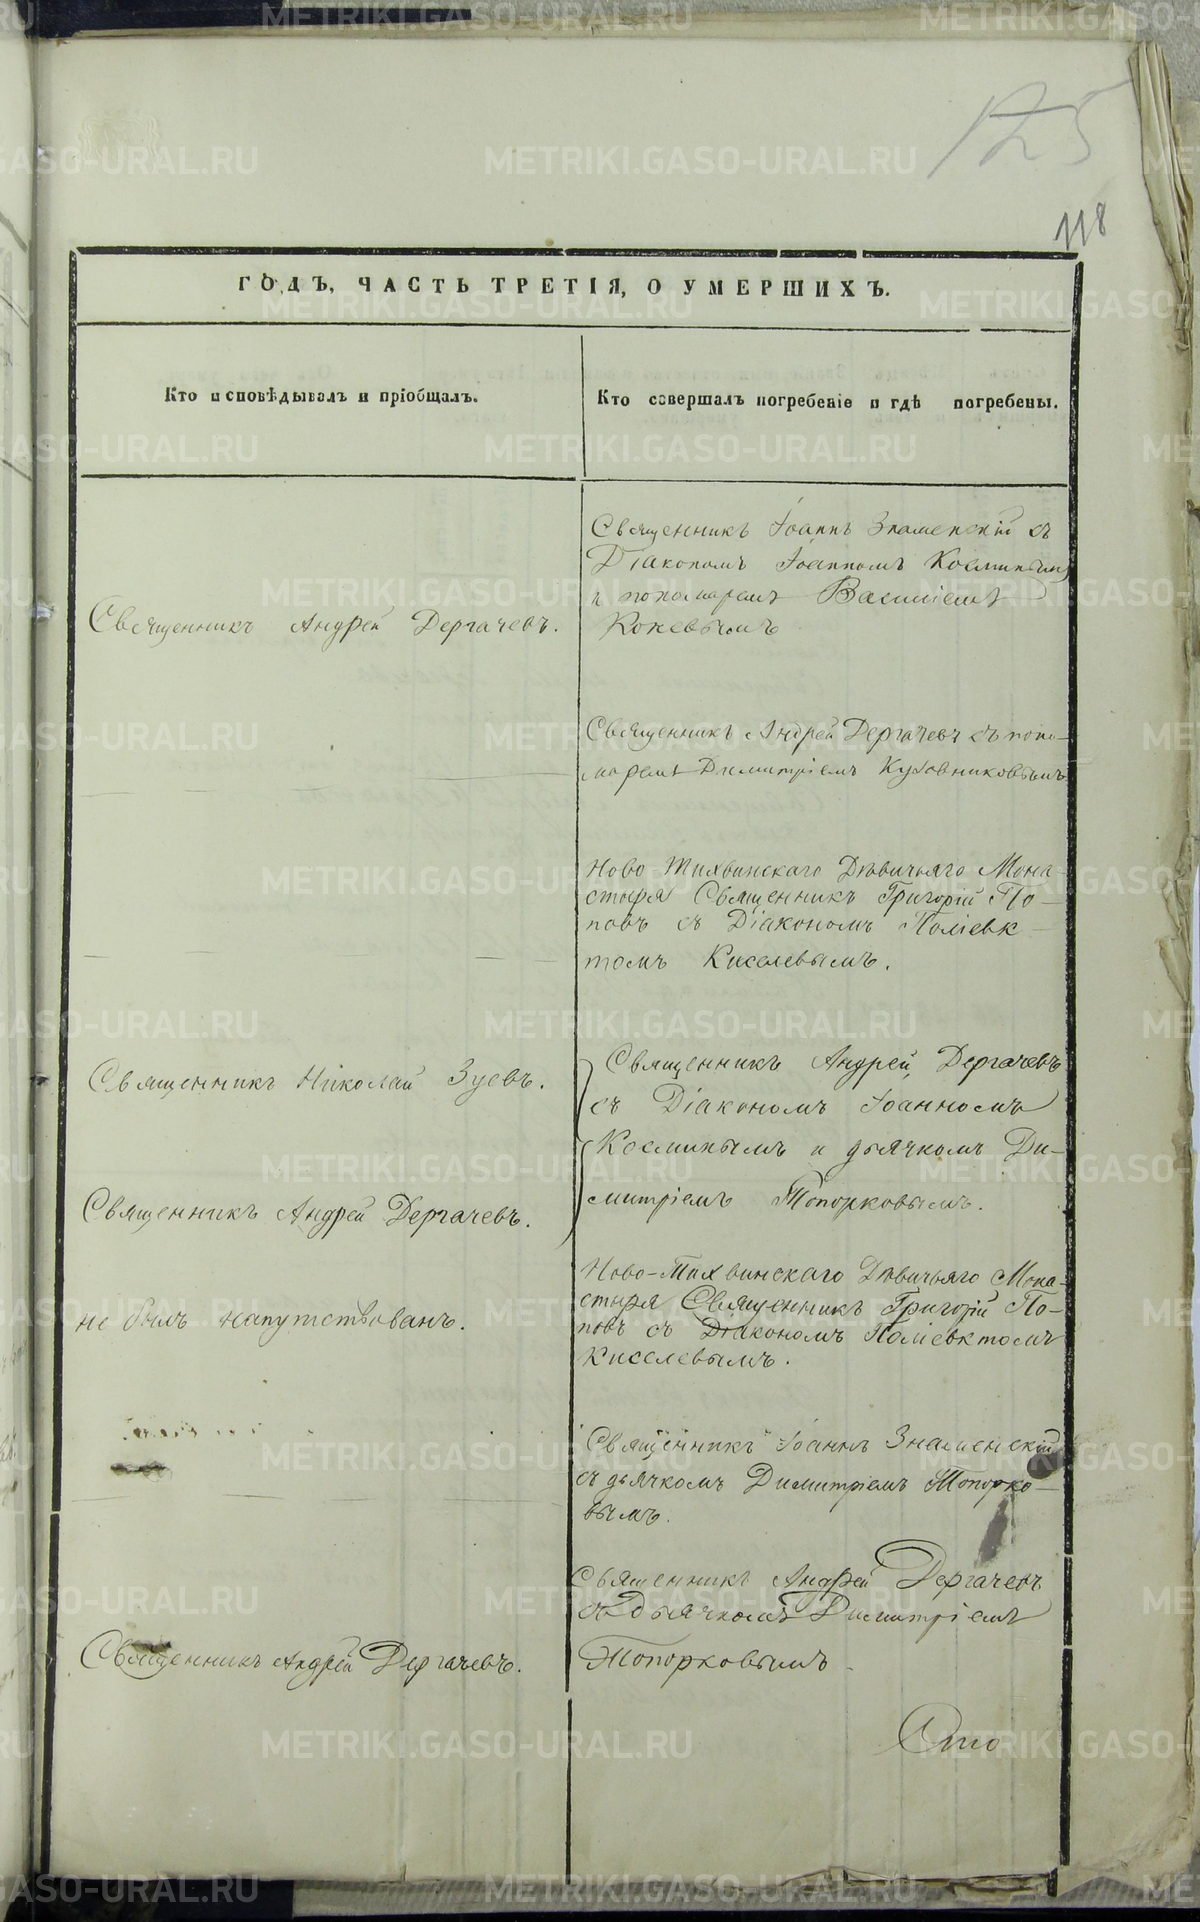 125
118
ГОДЪ, ЧАСТЬ ТРЕТІЯ, О УМЕРШИХЪ.
Кто исповѣдывалъ и пріобщалъ.
Кто совершалъ погребеніе и гдѣ погребены.
Священникъ Іоаннъ Знаменскій съ
Діакономъ Іоанномъ Косминымъ
и пономаремъ Василіемъ
Священникъ Андрей Дергачевъ.
Коневымъ
Священникъ Андрей Дергачевъ съ поно-
маремъ Димитріемъ Кузовниковымъ
Ново-Тихвинскаго Дѣвичьяго Мона-
стыря Священникъ Григорій По-
повъ съ Діакономъ Поліевк-
томъ Киселевымъ.
Священникъ Николай Зуевъ.
Священникъ Андрей Дергачевъ
съ Діакономъ Іоанномъ
Косминымъ и дьячкомъ Ди-
Священникъ Андрей Дергачевъ.
митріемъ Топорковымъ.
Ново-Тихвинскаго Дѣвичьяго Мона-
не былъ напутствованъ.
стыря Священникъ Григорій По-
повъ съ Діакономъ Поліевктомъ
Киселевымъ.
Священникъ Іоаннъ Знаменскій
съ дьячкомъ Димитріемъ Топорко-
вымъ.
Священникъ Андрей Дергачевъ
съ Дьячкомъ Димитріемъ
Священникъ Андрей Дергачевъ.
Топорковымъ
METRIKI.GASO-URAL.RU